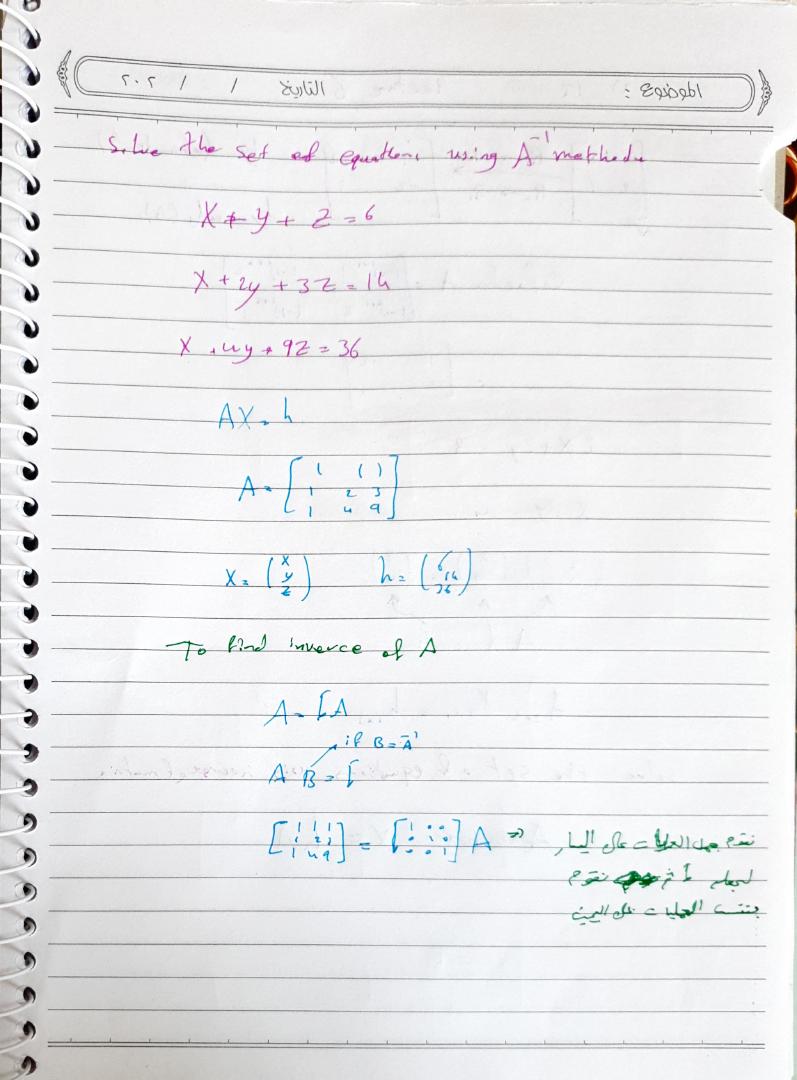 الموضوع : التاريخ / / ٢٠٢
Solve the set of equations using A⁻¹ method
X + y + z = 6
X + 2y + 3z = 14
X + 4y + 9z = 36
AX = h
A = [1 1 1
1 2 3
1 4 9]
X = (x y z) h = (6 14 36)
To find inverce of A
A = I A
if B = A⁻¹
A B = I
[1 1 1
1 2 3
1 4 9] = [1 0 0
0 1 0
0 0 1] A ⇒ نقوم بعمل العمليات على اليسار
لجعلها I ثم نقوم
بنفس العمليات على اليمين